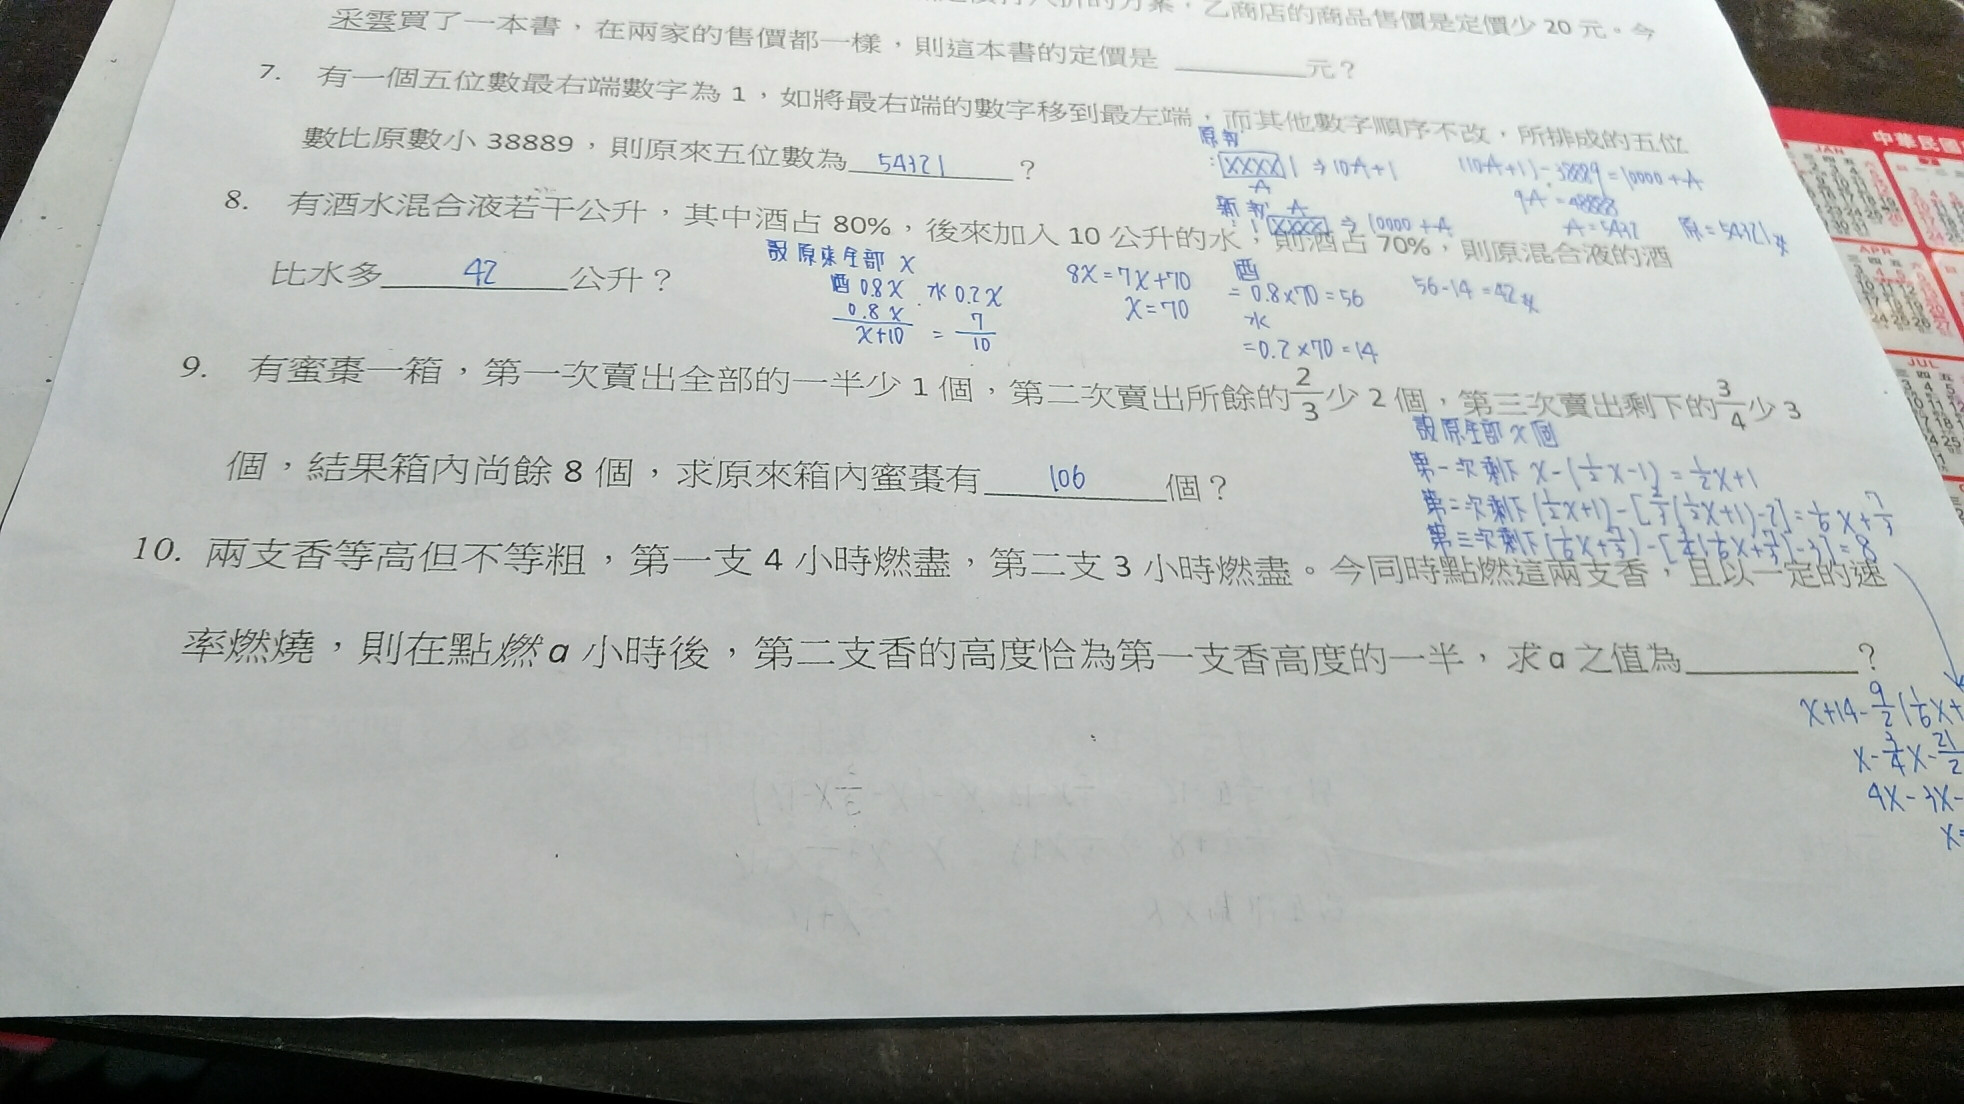 的方案，乙商店的商品售價是定價少 20 元。今
采雲買了一本書，在兩家的售價都一樣，則這本書的定價是 ________元？
7. 有一個五位數最右端數字為 1，如將最右端的數字移到最左端，而其他數字順序不改，所排成的五位
數比原數小 38889，則原來五位數為 54321 ？
原數
: XXXX 1 ⇒ 10A+1
A
新數 A
: 1 XXXX ⇒ 10000+A
(10A+1)-38889=10000+A
9A=48888
A=5432 原=54321
8. 有酒水混合液若干公升，其中酒占 80%，後來加入 10 公升的水，則酒占 70%，則原混合液的酒
比水多 42 公升？
設原來全部 X
酒 0.8X 水 0.2X
0.8X/X+10 = 7/10
8X=7X+70
X=70
酒
=0.8×70=56
水
=0.2×70=14
56-14=42
9. 有蜜棗一箱，第一次賣出全部的一半少 1 個，第二次賣出所餘的2/3少 2 個，第三次賣出剩下的3/4少 3
個，結果箱內尚餘 8 個，求原來箱內蜜棗有 106 個？
設原全部 X 個
第一次剩下 X-(1/2X-1)=1/2X+1
第二次剩下 (1/2X+1)-[2/3(1/2X+1)-2]=1/6X+7/3
第三次剩下 (1/6X+7/3)-[3/4(1/6X+7/3)-3]=8
10. 兩支香等高但不等粗，第一支 4 小時燃盡，第二支 3 小時燃盡。今同時點燃這兩支香，且以一定的速
率燃燒，則在點燃 a 小時後，第二支香的高度恰為第一支香高度的一半，求 a 之值為________？
X+14-9/2(1/6X+
X-3/4X-21/2
4X-3X-
X=
中華民國
JAN
APR
JUL